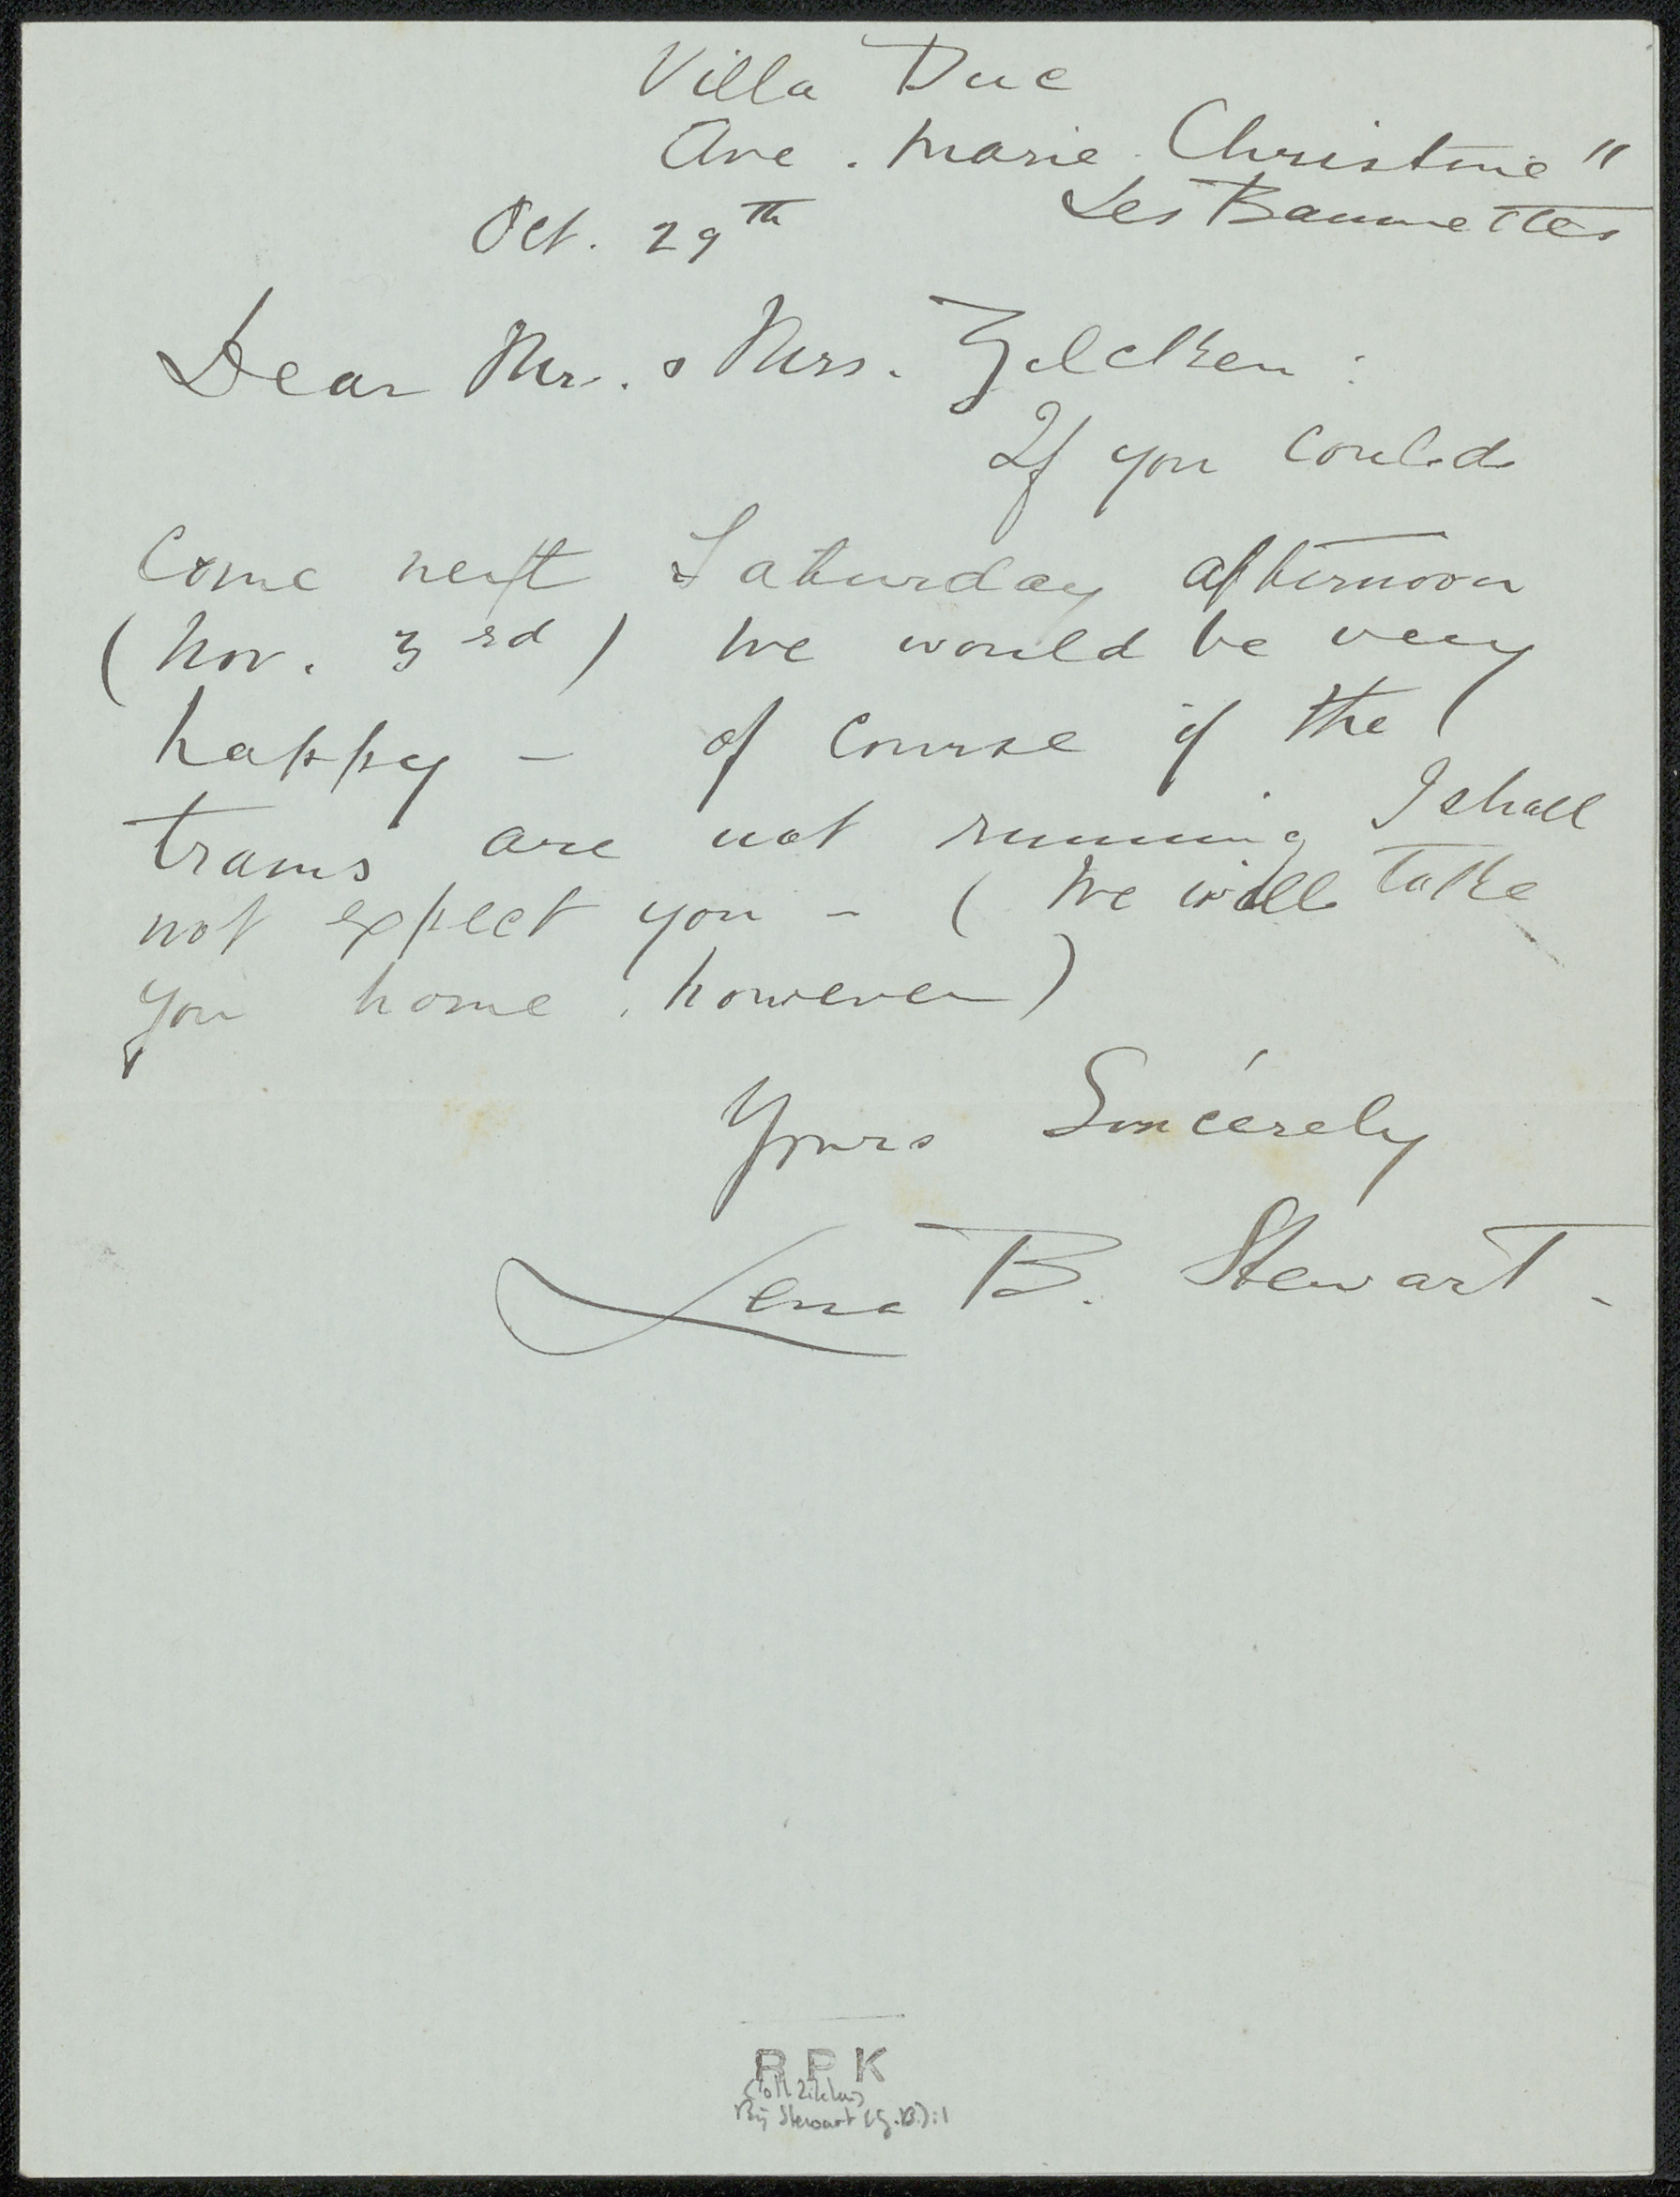 Villa Duc
Ave. Marie Christine"
Les Baumettes
Oct. 29th
Dear Mr. & Mrs. Zilcken:
If you could
come next Saturday afternoon
(Nov. 3rd) we would be very
happy – of course if the
trams are not running I shall
not expect you – (We will take
you home, however)
Yours Sincerely
Lena B. Stewart.
RPK
Coll. Zilcken
Bij Stewart (G.B.):1